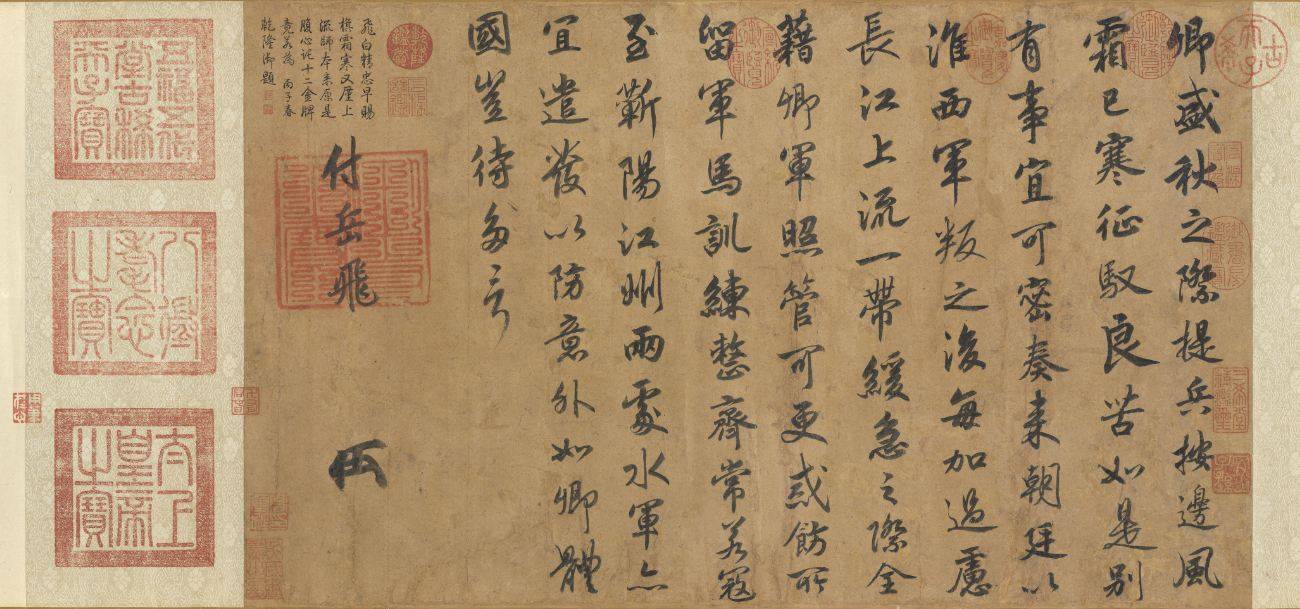 古希天子
卿盛秋之際提兵按邊風
霜已寒征馭良苦如是別
有事宜可密奏来朝廷以
淮西軍叛之後每加過慮
長江上流一帶緩急之際全
藉卿軍照管可更戒飭所
留軍馬訓練整齊常若寇
至蘄陽江州兩處水軍亦
宜遣發以防意外如卿體
國豈待多言
付岳飛
飛白精忠早賜
旗霜寒又廑上
流師本来原是
腹心託十二金牌
竟若為 丙子春
乾隆御題
五福五代
堂古稀
天子寶
八徵
耄念
之寶
太上
皇帝
之寶